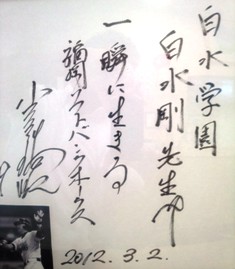 白水学園
白水剛先生へ
一瞬に生きる
福岡ソフトバンクホークス
小久保裕紀
2012.3.2.